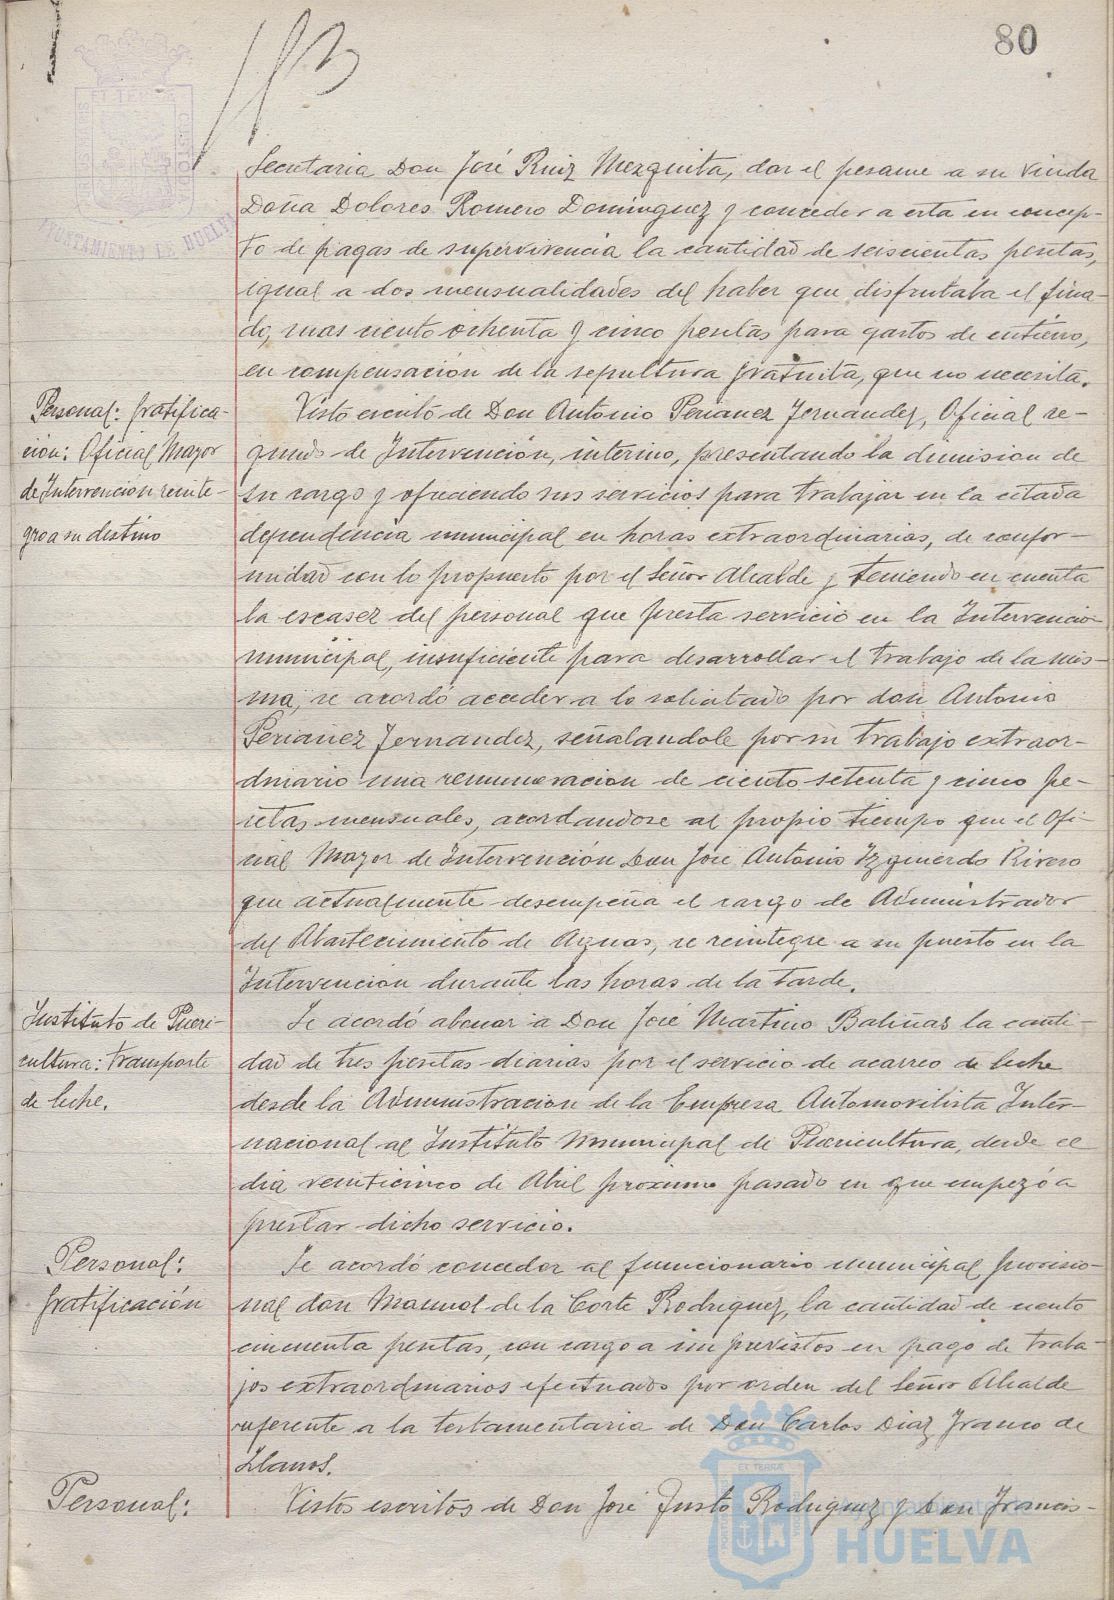 80
PORTUS MARIS ET TERRAE CUSTODIA
AYUNTAMIENTO DE HUELVA
Secretaria Don José Ruiz Mezquita, dar el pesame a su viuda
Doña Dolores Romero Dominguez y conceder a esta en concep-
to de pagas de supervivencia la cantidad de seiscientas pesetas,
igual a dos mensualidades del haber que disfrutaba el fina-
do, mas ciento ochenta y cinco pesetas para gastos de entierro,
en compensación de la sepultura gratuita, que no necesita.
Personal: gratifica-
ción: Oficial Mayor
de Intervencion reinte-
gro a su destino
Visto escrito de Don Antonio Perianez Fernandez, Oficial se-
gundo de Intervención, interino, presentando la dimision de
su cargo y ofreciendo sus servicios para trabajar en la citada
dependencia municipal en horas extraordinarias, de confor-
midad con lo propuesto por el Señor Alcalde y teniendo en cuenta
la escasez del personal que presta servicio en la Intervencion
municipal, insuficiente para desarrollar el trabajo de la mis-
ma, se acordó acceder a lo solicitado por don Antonio
Perianez Fernandez, señalandole por su trabajo extraor-
dinario una remuneracion de ciento setenta y cinco pe-
setas mensuales, acordandose al propio tiempo que el Ofi-
cial Mayor de Intervención Don José Antonio Izquierdo Rivero
que actualmente desempeña el cargo de Administrador
del Abastecimiento de Aguas, se reintegre a su puesto en la
Intervencion durante las horas de la tarde.
Instituto de Pueri-
cultura: transporte
de leche.
Se acordó abonar a Don José Martino Baliñas la canti-
dad de tres pesetas diarias por el servicio de acarreo de leche
desde la Administracion de la Empresa Automovilista Inter-
nacional al Instituto Municipal de Puericultura, desde el
dia veinticinco de Abril proximo pasado en que empezó a
prestar dicho servicio.
Personal:
gratificación
Se acordó conceder al funcionario municipal provisio-
nal don Manuel de la Corte Rodriguez, la cantidad de ciento
cincuenta pesetas, con cargo a imprevistos en pago de traba-
jos extraordinarios efectuados por orden del Señor Alcalde
referente a la testamentaria de Don Carlos Diaz Franco de
Llanos.
Personal:
Vistos escritos de Don José Justo Rodriguez y Don Francis-
Ayuntamiento de
HUELVA